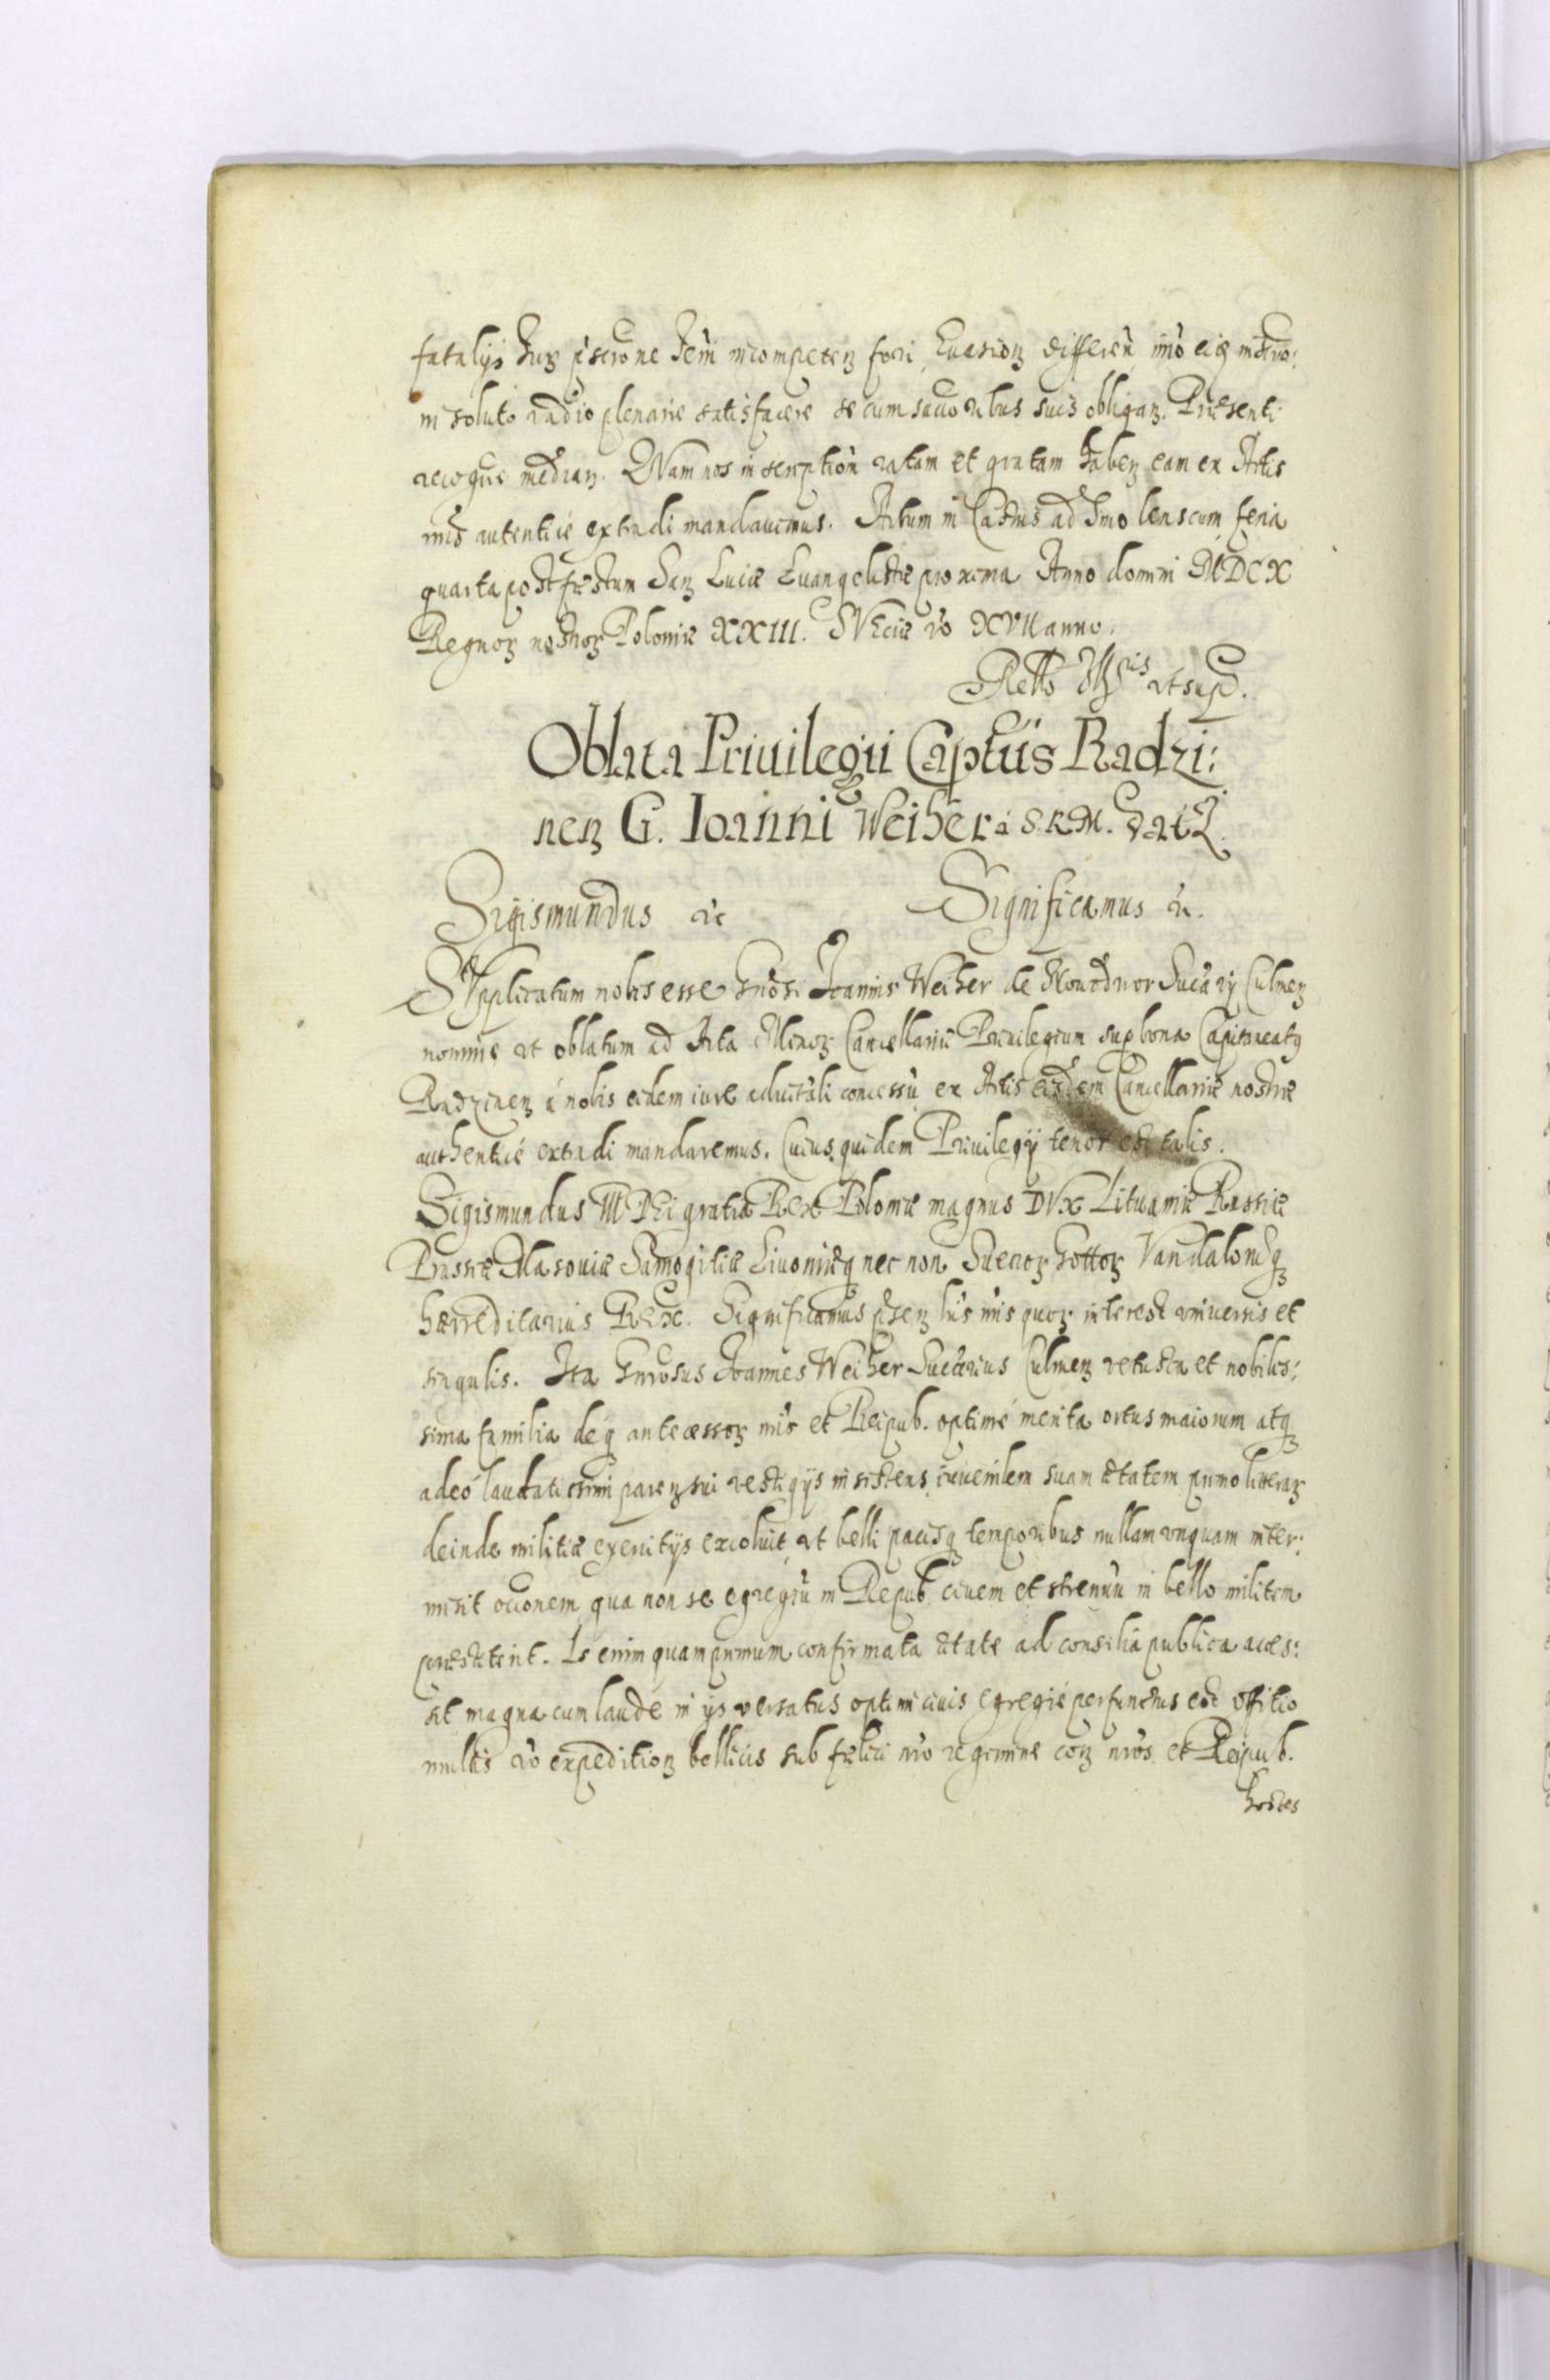 fatalijs huz p̃scrõne Iẽm incompeteɜ fori, Euasioɜ differeñ imò eiꝗ
in soluto vadio plenarie satisfacere se cum succoribus suis obligaɜ. Præsenti
mediaɜ. QVam nos inscription̄ ratam et gratam habeɜ eam ex Actis
nr̃is autenticè extradi mandauimus. Actum in Castris ad Smolenscum feria
quarta post festum San Luciæ Euangelistæ proxima Anno domini MDCX
Regnoɜ nostroɜ Poloniæ XXIII. SVEciæ v̊o XVII anno.
vt sup.
Oblata Priuilegii Captũs Radzi:
neɜ G. Ioanni Weiher à S.R.M. dat
Sigismundus etc Significamus etc.
SVpplicatum nobis esse Gnõsi Ioannis Weiher de Succãrij Culmeɜ
nomine vt oblatum ad Acta Minoɜ Cancellariæ Priuilegium sup bona Capitaneatꝰ
Radzineɜ à nobis eidem iure aduitali concessũ ex Actis eiusdem Cancellariæ nostræ
authenticè extradi mandaremus. Cuius quidem Priuilegij tenor est talis.
Sigismundus III DEi gratia REX Poloniæ magnus DVX Lituaniæ Russiæ
Prussiæ Masouiæ Samogitiæ Liuoniæꝗ nec non Sueuoɜ Gottoɜ Vandalorũꝗ
hærreditarius REX. Significamus p̃seɜ lr̃is nr̃is quoɜ interest vniuersis et
singulis. Ita Gnrosus Ioannes Weiher Succãrius Culmeɜ vetusta et nobilis:
sima familia deꝗ antecessoɜ nr̃is et Reipub. optimè merita ortus maiorum atꝗ
adeò laudatissimi pareɜ sui vestigijs insistens, iuuenilem suam ætatem primo litteraɜ
deinde militiæ exercitijs excoluit, vt belli pacisꝗ temporibus nullam vnquam inter:
misit occõnem qua non se egregiũ in Repub. ciuem et strenuũ in bello militem
præstiterit. Is enim quamprimum confirmata ætate ad consilia publica acces:
sit magna cum laude in ijs versatus optimi ciuis egregiè perfunctus est offitio
multis v̊o expeditioɜ bellicis sub fælici nr̃o regimine coɜ nr̃os et Reipub.
hostes